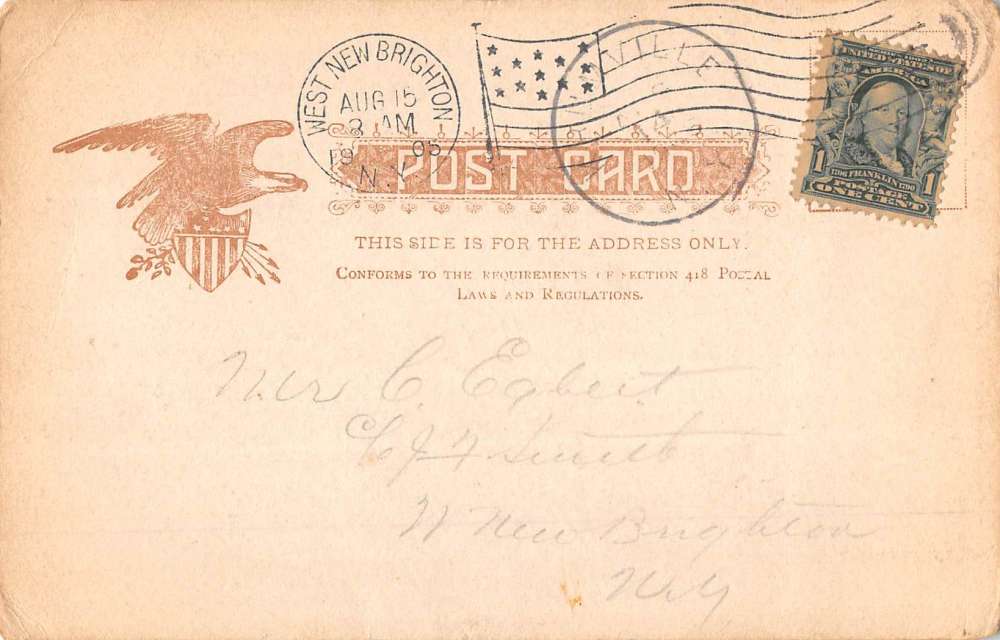 WEST NEW BRIGHTON
AUG 15
3 AM
1905
N.Y.
VILLE
UNITED STATES OF
AMERICA
1706 FRANKLIN 1790
POSTAGE
1 1
ONE CENT
POST CARD
THIS SIDE IS FOR THE ADDRESS ONLY.
CONFORMS TO THE REQUIREMENTS OF SECTION 418 POSTAL
LAWS AND REGULATIONS.
Mr C. Egbert
W New Brighton
N.Y